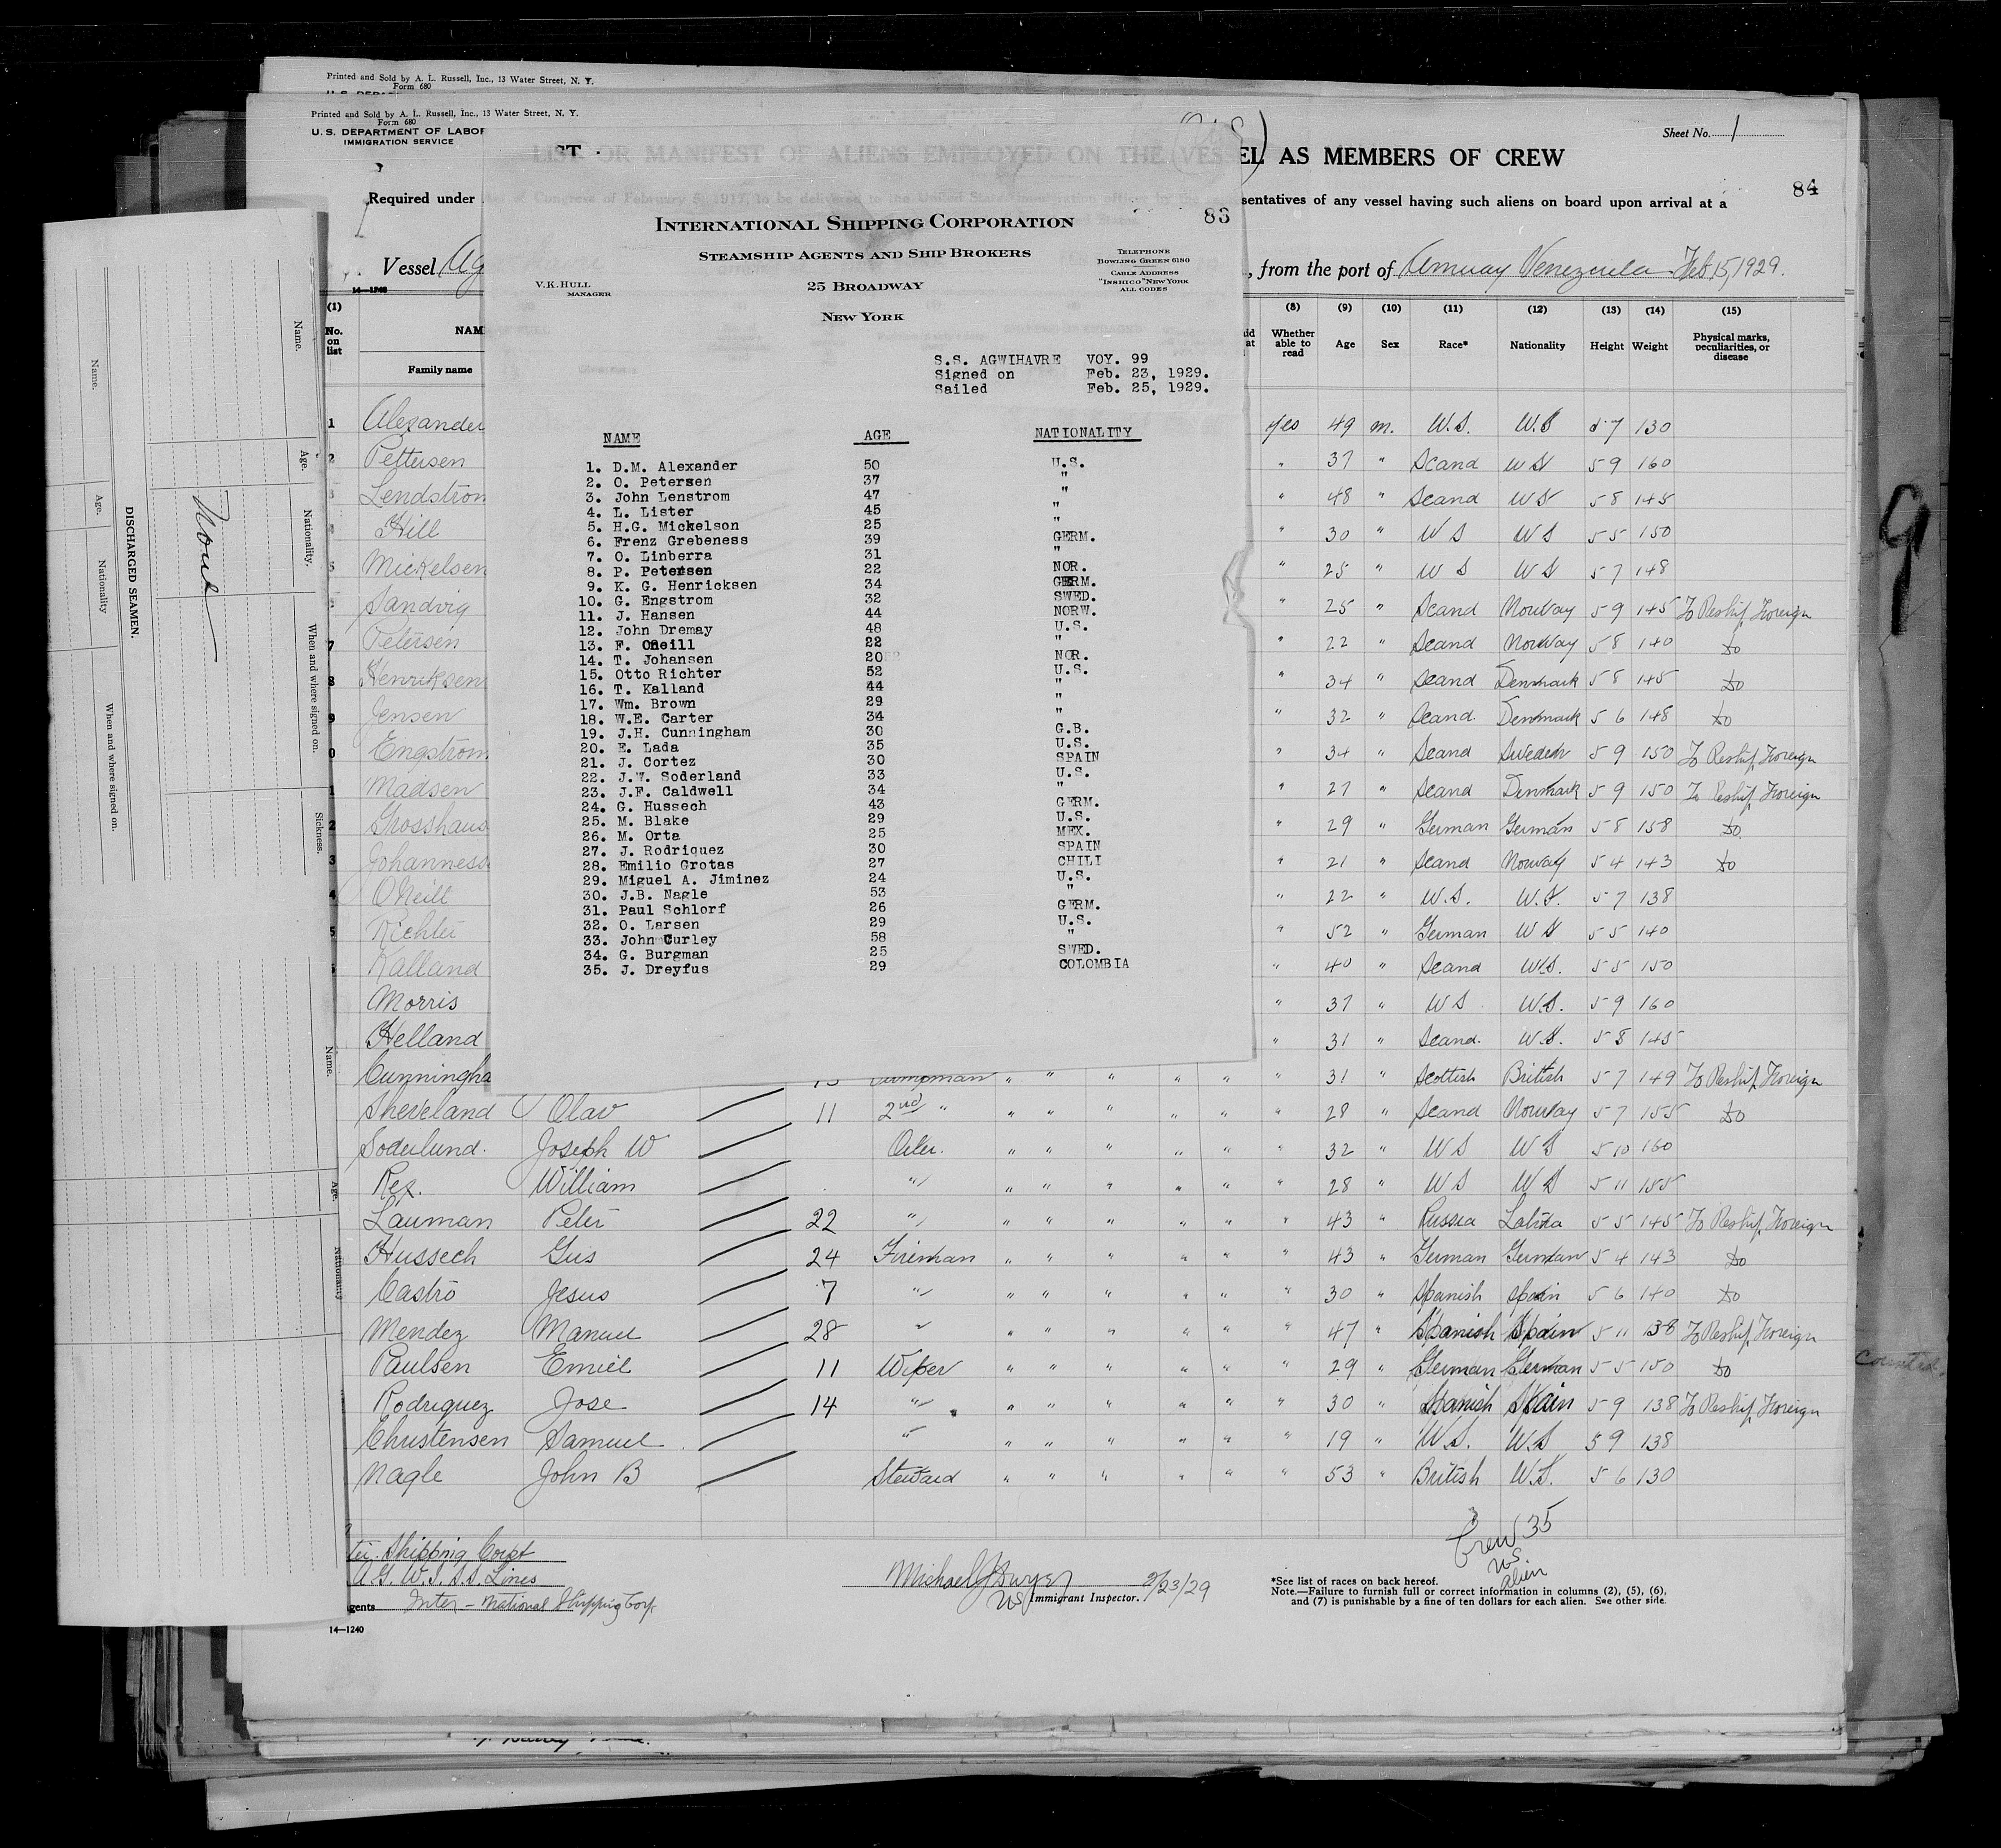 Printed and Sold by A. L. Russell, Inc., 13 Water Street, N. Y.
Form 680
Printed and Sold by A. L. Russell, Inc., 13 Water Street, N. Y.
Form 680
U. S. DEPARTMENT OF LABOR
IMMIGRATION SERVICE
Sheet No. 1
LIST OR MANIFEST OF ALIENS EMPLOYED ON THE VESSEL AS MEMBERS OF CREW
84
Required under
sentatives of any vessel having such aliens on board upon arrival at a
Vessel Ag
, from the port of Amuay Venezuela Feb 15, 1929.
INTERNATIONAL SHIPPING CORPORATION
83
STEAMSHIP AGENTS AND SHIP BROKERS
TELEPHONE
BOWLING GREEN 6180
CABLE ADDRESS
"INSHICO" NEW YORK
ALL CODES
V. K. HULL
MANAGER
25 BROADWAY
NEW YORK
S.S. AGWIHAVRE VOY. 99
Signed on Feb. 23, 1929.
Sailed Feb. 25, 1929.
NAME AGE NATIONALITY
1. D.M. Alexander 50 U.S.
2. O. Petersen 37 "
3. John Lenstrom 47 "
4. L. Lister 45 "
5. H.G. Mickelson 25 "
6. Frenz Grebeness 39 GERM.
7. O. Linberra 31 "
8. P. Petersen 22 NOR.
9. K. G. Henricksen 34 GERM.
10. G. Engstrom 32 SWED.
11. J. Hansen 44 NORW.
12. John Dremay 48 U.S.
13. F. Oneill 22 "
14. T. Johansen 20 NOR.
15. Otto Richter 52 U.S.
16. T. Kalland 44 "
17. Wm. Brown 29 "
18. W.E. Carter 34
19. J.H. Cunningham 30 G.B.
20. E. Lada 35 U.S.
21. J. Cortez 30 SPAIN
22. J.W. Soderland 33 U.S.
23. J.F. Caldwell 34 "
24. G. Hussech 43 GERM.
25. M. Blake 29 U.S.
26. M. Orta 25 MEX.
27. J. Rodriquez 30 SPAIN
28. Emilio Grotas 27 CHILI
29. Miguel A. Jiminez 24 U.S.
30. J.B. Nagle 53 "
31. Paul Schlorf 26 GERM.
32. O. Larsen 29 U.S.
33. John Curley 58 "
34. G. Burgman 25 SWED.
35. J. Dreyfus 29 COLOMBIA
(1) (8) (9) (10) (11) (12) (13) (14) (15)
No. on list NAM Family name Whether able to read Age Sex Race* Nationality Height Weight Physical marks, peculiarities, or disease
1 Alexander yes 49 m. U.S. U.S 5 7 130
2 Pettersen " 37 " Scand US 5 9 160
Lendstrom " 48 " Scand US 5 8 145
Hill " 30 " US US 5 5 150
Mickelsen " 25 " US US 5 7 148
Sandvig " 25 " Scand Norway 5 9 145 To Reship Foreign
7 Petersen " 22 " Scand Norway 5 8 140 do
8 Henriksen " 34 " Scand Denmark 5 8 145 do
9 Jensen " 32 " Scand. Denmark 5 6 148 do
0 Engstrom " 34 " Scand Sweden 5 9 150 To Reship Foreign
1 Madsen " 27 " Scand Denmark 5 9 150 To Reship Foreign
2 Grosshaus " 29 " German German 5 8 158 do
3 Johannesse " 21 " Scand Norway 5 4 143 do
4 ONeill " 22 " U.S. U.S. 5 7 138
5 Richter " 52 " German US 5 5 140
Kalland " 40 " Scand U.S. 5 5 150
Morris " 37 " US U.S. 5 9 160
Helland " 31 " Scand. U.S. 5 8 145
Cunningha 13 Pumpman " " " " " " 31 " Scottish British 5 7 149 To Reship Foreign
Sheveland Olav 11 2nd " " " " " " " 28 " Scand Norway 5 7 155 do
Soderlund. Joseph W Oiler. " " " " " " 32 " US US 5 10 160
Rex. William " " " " " " " 28 " US US 5 11 155
Lauman Peter 22 " " " " " " " 43 " Russia Latvia 5 5 145 To Reship Foreign
Hussech Gus 24 Fireman " " " " " 43 " German German 5 4 143 do
Castro Jesus 7 " " " " " " " 30 " Spanish Spain 5 6 140 do
Mendez Manuel 28 " " " " " " " 47 " Spanish Spain 5 11 138 To Reship Foreign
Paulsen Emiel 11 Wiper " " " " " " 29 " German German 5 5 150 do
Rodriquez Jose 14 " " " " " " " 30 " Spanish Spain 5 9 138 To Reship Foreign
Christensen Samuel " " " " " " " 19 " U.S. U.S 5 9 138
Nagle John B Steward " " " " " " 53 " British U.S. 5 6 130
Crew 35
US
alien
Shipping Corpt
A. G. W. I. S.S. Lines
gents Inter-national Shipping Corp.
Michael J Dwyer 2/23/29
US Immigrant Inspector.
*See list of races on back hereof.
Note.—Failure to furnish full or correct information in columns (2), (5), (6),
and (7) is punishable by a fine of ten dollars for each alien. See other side.
14—1240
DISCHARGED SEAMEN.
Name. Age. Nationality When and where signed on.
Name. Age. Nationality. When and where signed on. Sickness.
None
Name. Age. Nationality
9